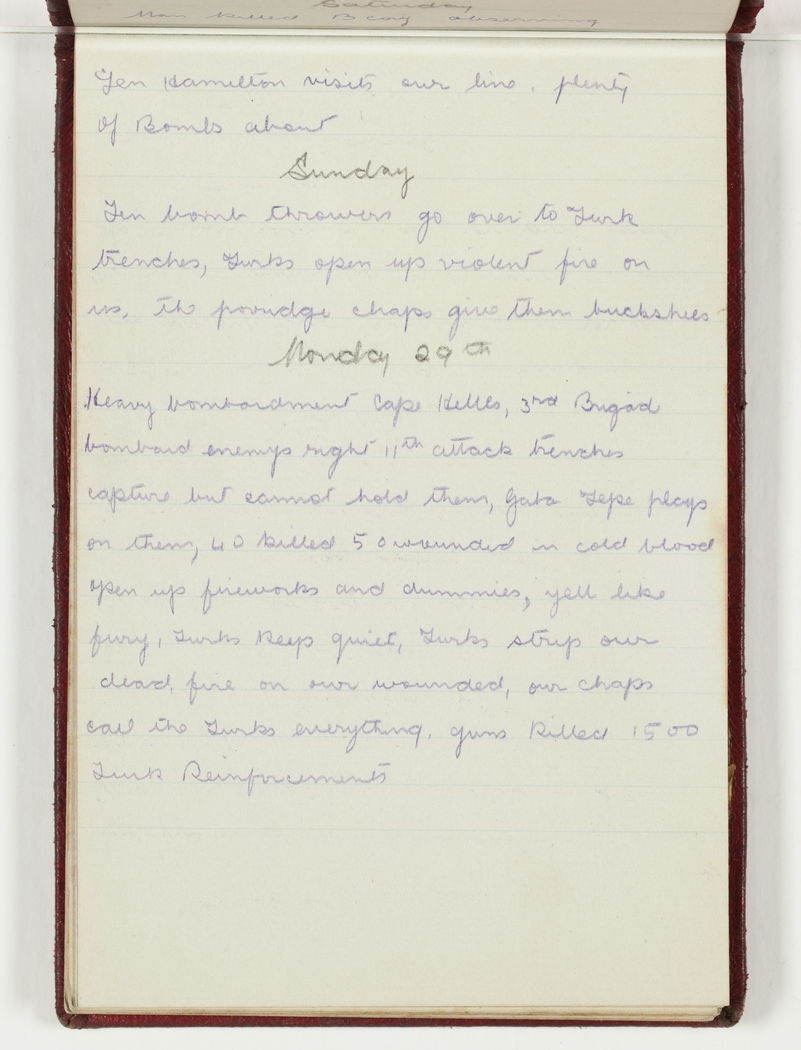 Saturday
Man killed B Coy observing
Gen Hamilton visits our line, plenty
of Bombs about
Sunday
Ten bomb throwers go over to Turk
trenches, Turks open up violent fire on
us, the poridge chaps give them buckshees
Monday 29th
Heavy bombardment Cape Helles, 3rd Brigad
bombard enemys right 11th attack trenches
capture but cannot hold them, Gaba Tepe plays
on them, 40 killed 50 wounded in cold blood
open up fireworks and dummies, yell like
fury, Turks keep quiet, Turks strip our
dead, fire on our wounded, our chaps
call the Turks everything. guns killed 1500
Turk Reinforcements